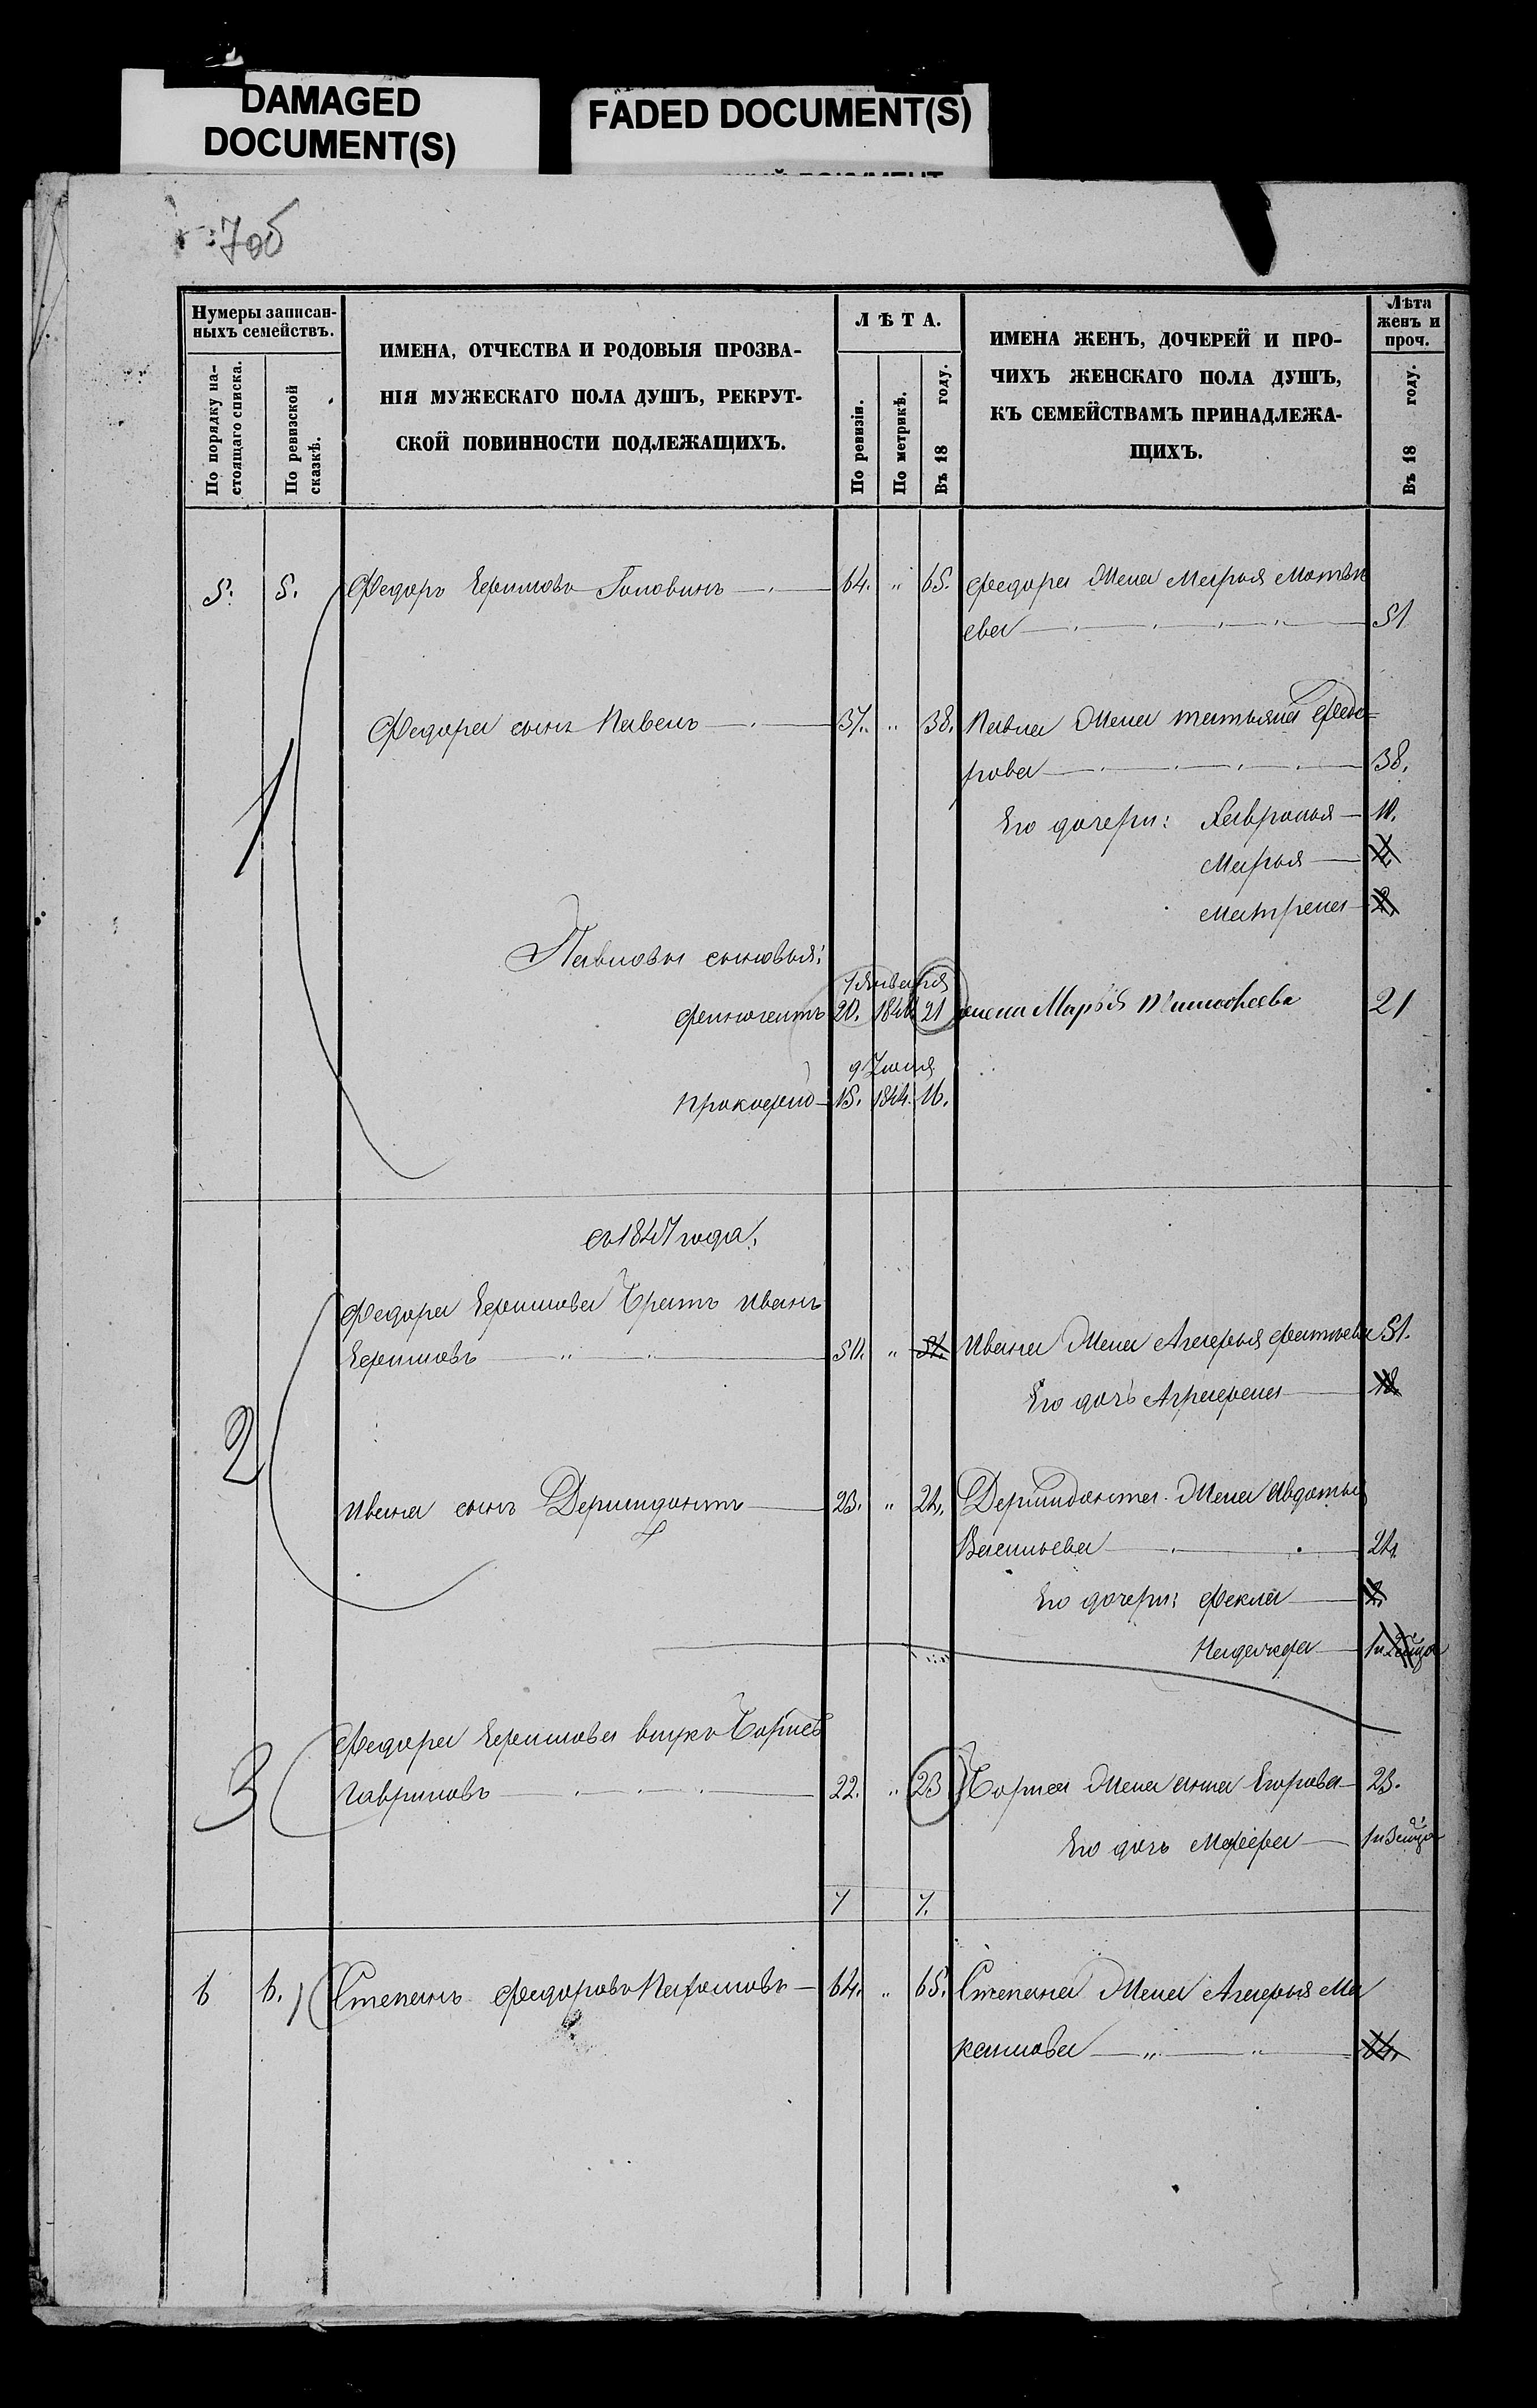 DAMAGED
DOCUMENT(S)
FADED DOCUMENT(S)
70б
Нумеры записан-
ныхъ семействъ.
По порядку на-
стоящаго списка.
По ревизской
сказкѣ.
ИМЕНА, ОТЧЕСТВА И РОДОВЫЯ ПРОЗВА-
НІЯ МУЖЕСКАГО ПОЛА ДУШЪ, РЕКРУТ-
СКОЙ ПОВИННОСТИ ПОДЛЕЖАЩИХЪ.
ЛѢТА.
По ревизіи.
По метрикѣ.
Въ 18 году.
ИМЕНА ЖЕНЪ, ДОЧЕРЕЙ И ПРО-
ЧИХЪ ЖЕНСКАГО ПОЛА ДУШЪ,
КЪ СЕМЕЙСТВАМЪ ПРИНАДЛЕЖА-
ЩИХЪ.
Лѣта
женъ и
проч.
Въ 18 году.
5. 5. Федоръ Ефимовъ Головинъ 64. " 65. Федора жена Марья Матвѣ
ева 51
1
Федора сынъ Павелъ 37. " 38. Павла жена татьяна Федо=
рова 38.
Его дочери: Хавронья 10.
Марья
Матрена 2.
Павловы сыновья:
1 января
20. 1840 21 жена Марья Тимофеева 21
9 Июля
Прокофей 15. 1844. 16.
Федора Ефимова братъ Иванъ
Ефимовъ 50. " 51. Ивана жена Агафья 51.
Его дочь Аграфена 18
2
Ивана сынъ Дормидонтъ 23. " 24. Дормидонта жена Авдотья
Васильева 24.
Его дочери: Фекла 2.
Надежда
3
Федора Ефимова внукъ Борисъ
Гавриловъ 22. " 23 Бориса жена Анна Егорова 23.
Его дочь
7 7.
6 6. 1 Степанъ Федоровъ 64. " 65. Степана жена Агафья Ма
ксимова " " 64.